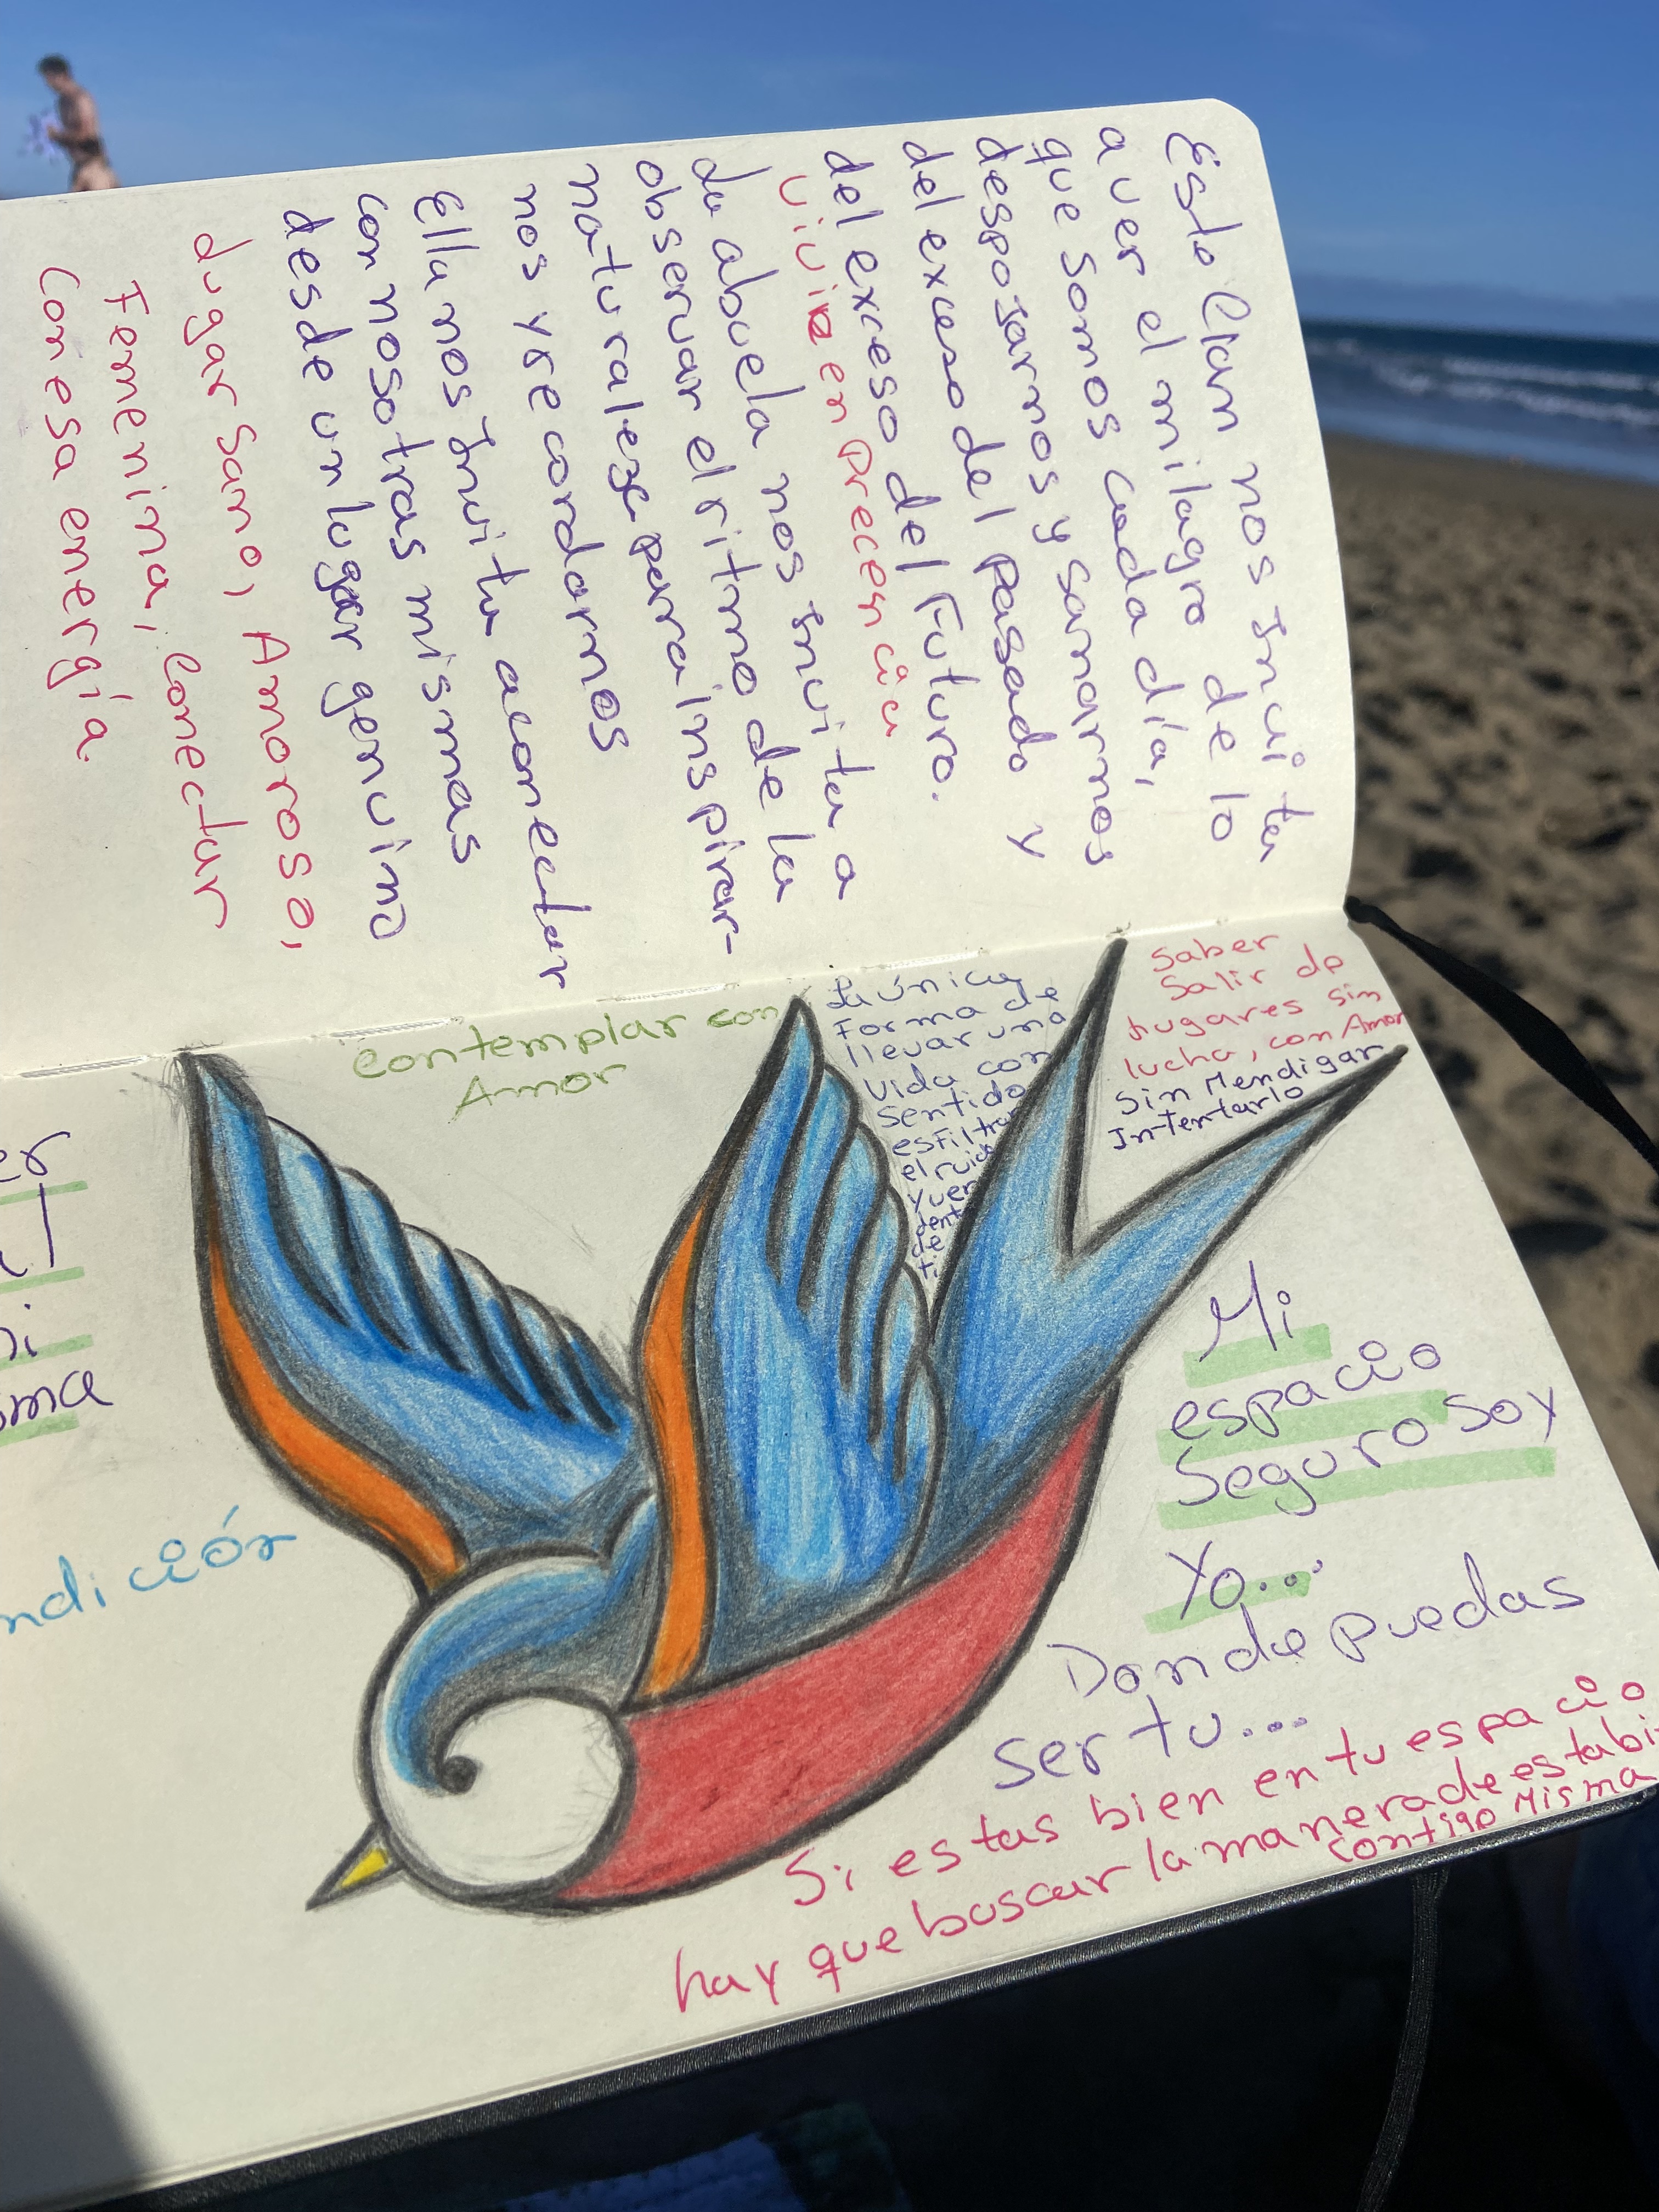 Este Clam nos Invita
a ver el milagro de lo
que somos cada día,
despojarnos y sanarnos
del exceso del pasado y
del exceso del Futuro.
Vivir en Precencia
La abuela nos Invita a
observar el ritmo de la
naturaleza para inspirar-
nos y recordarnos
Ella nos Invita a conectar
con nosotras mismas
desde un lugar genuino
Lugar sano, Amoroso,
Femenino, Conectar
con esa energía.
Contemplar con
Amor
La única
Forma de
llevar una
vida con
sentido
es Filtrar
el ruido
Saber
Salir de
lugares sin
lucha, con Amor
Sin Mendigar
Intentarlo
Mi
espacio
Seguro soy
Yo...
Donde puedas
ser tu...
Si estas bien en tu espacio
hay que buscar la manera de estabi
contigo Misma
ndición